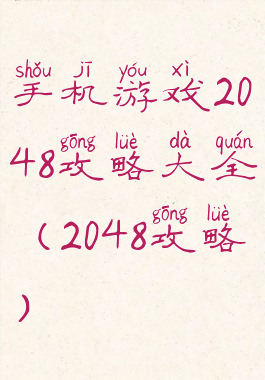 shǒu jī yóu xì
手机游戏20
gōng lüè dà quán
48攻略大全
gōng lüè
（2048攻略
）